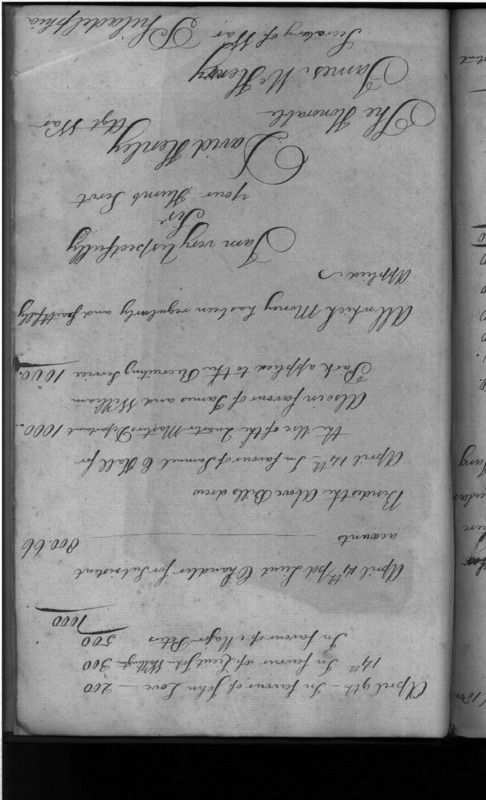 April 9th - In favour of John Love - 200
14th In favour of Lieut John Wellington 300
In favour of Major Peters 500
1000
April 14th pd Lieut Chandler for Subsistent
accounts 800.66
Besides the above Bills drew
April 14th In favour of Samuel C Hall for
the Use of the Quarter Masters Department 1000.
Also in favour of James and William
Park applied to the Recruiting Service 1000.
All which Money has been regularly and faithfully
applied
I am very respectfully
Sir
your Humb Servt
David Henley
Agt War
The Honorable
James McHenry
Secretary of War
Philadelphia